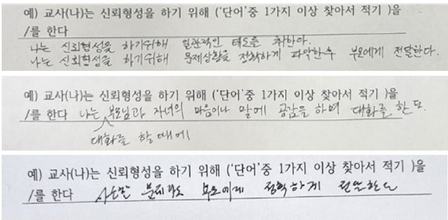 예) 교사(나)는 신뢰형성을 하기 위해 ('단어'중 1가지 이상 찾아서 적기 )을
/를 한다
나는 신뢰형성을 하기위해 일관적인 태도를 취한다.
나는 신뢰형성을 하기위해 문제상황을 정확하게 파악한후 부모에게 전달한다.
예) 교사(나)는 신뢰형성을 하기 위해 ('단어'중 1가지 이상 찾아서 적기 )을
/를 한다 나는 부모님과 자녀의 마음이나 말에 공감을 하며 대화를 한다.
대화를 할 때에
예) 교사(나)는 신뢰형성을 하기 위해 ('단어'중 1가지 이상 찾아서 적기 )을
/를 한다 부모에게 정확하게 전달한다